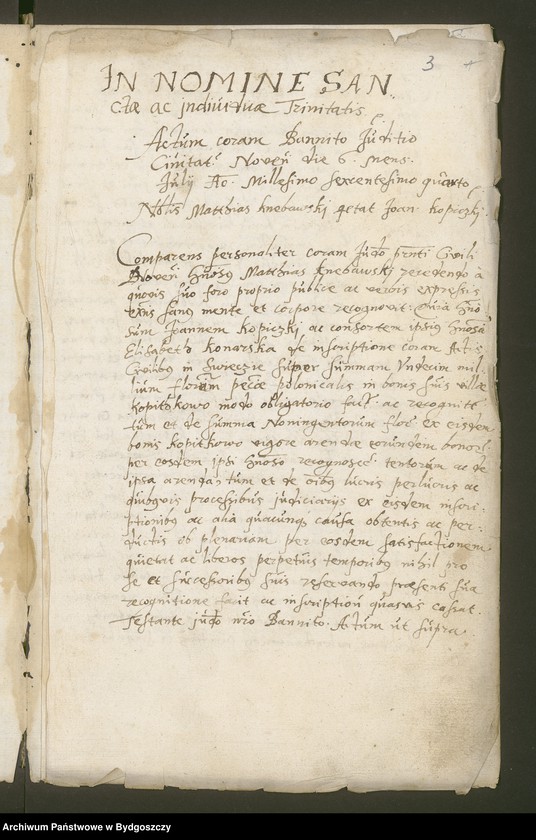 3
IN NOMINE SAN
ctæ ac indiuiduæ Trinitatis
Actum coram Bannito Juditio
Ciuitat: Noven die 6. Mens:
Julij Ao. Millesimo sexcentesimo quarto
Nblis Matthias Knebawski Joan: Kopiczki
Comparens personaliter coram Judo prnti Ciuili
Noven Matthias Knebawski recedendo à
quouis suo foro proprio publice ac verbis expressis
sanus mente et corpore recognovit: Quia
Joannem Kopiczki ac consortem ipsius
Elisabeth Konarska de inscriptione coram Actis
in super summam Vndecim mil
lium floren pecæ polonicalis in bonis suis villæ
Kopitzkowo modo obligatorio fact: ac recognit
tum et de summa Nonningentorum flor: ex eisdem
bonis Kopitkowo vigore arendæ eorundem bonor:
per eosdem ipsi recognosce: tentorum ac de
ipsa arenda tum et de oibus lucris perlucris ac
quibusuis processibus judiciarijs ex eisdem inscri:
ptionibus ac alia quacunq causa obtentis ac per:
ductis ob plenariam per eosdem satisfactionem
quietat ac liberos perpetuis temporibus nihil pro
se et successoribus suis reseruando præsenti sua
recognitione facit ac inscription quasuis cassat.
Testante judo nro Bannito. Actum ut supra.
Archiwum Państwowe w Bydgoszczy